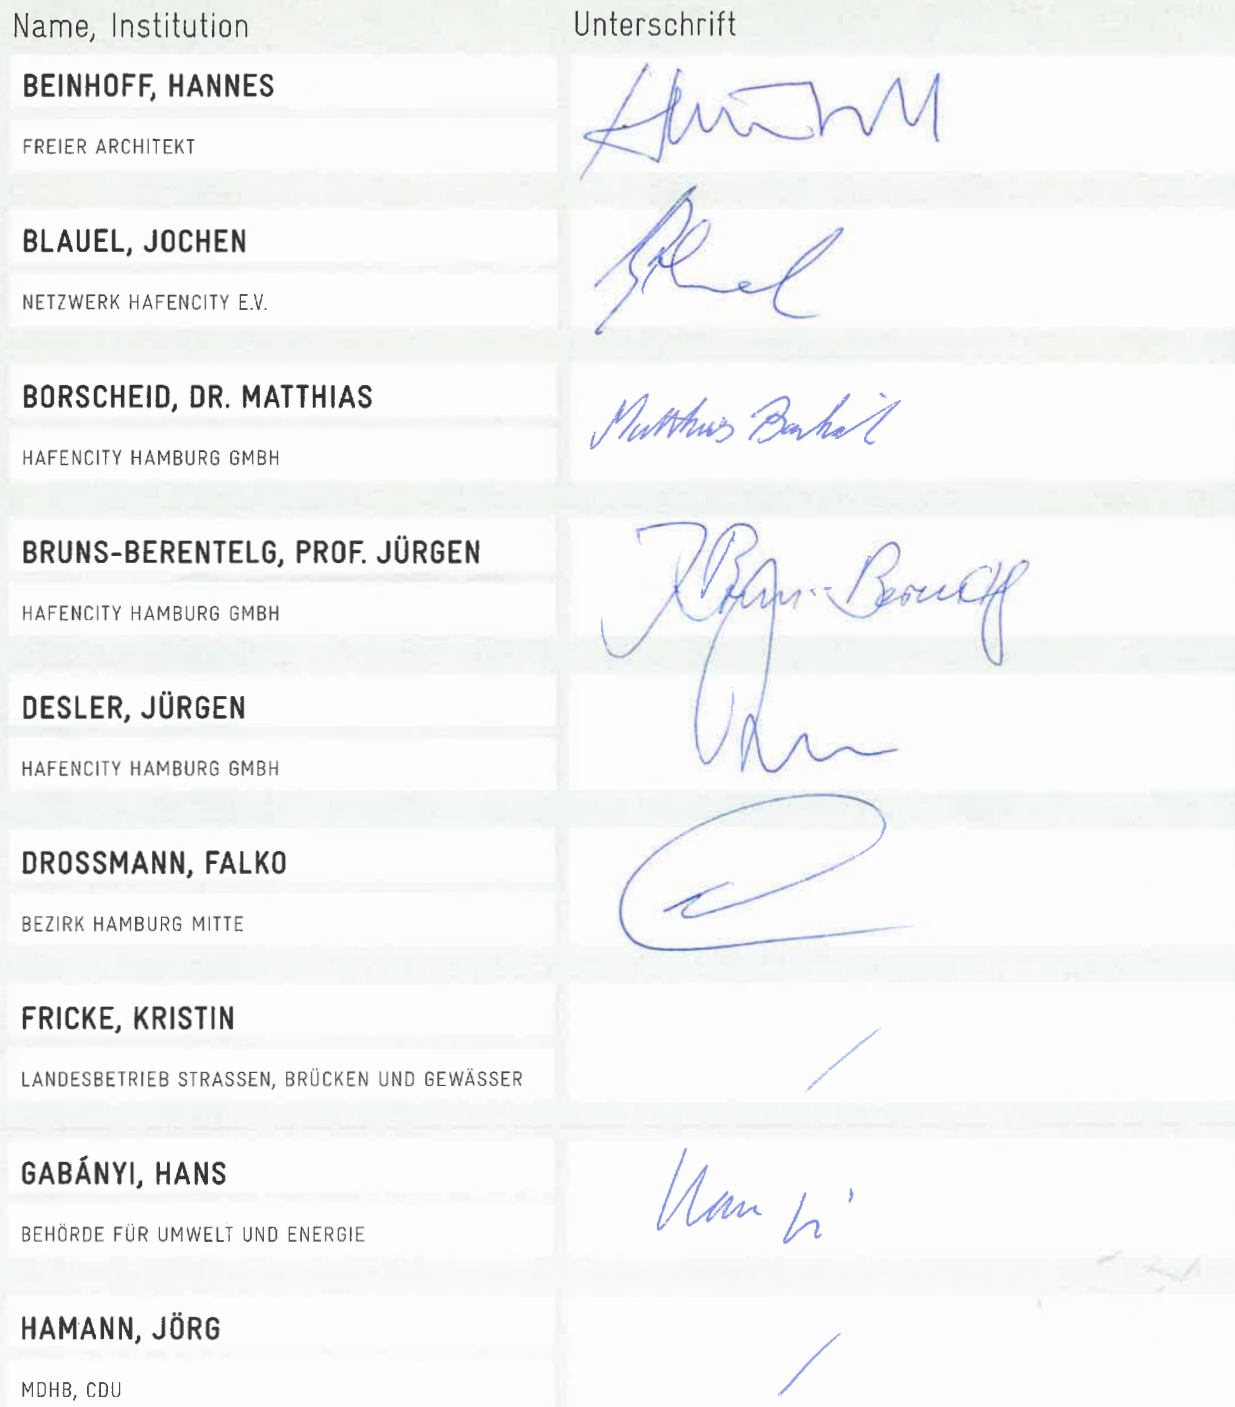 Name, Institution
Unterschrift
BEINHOFF, HANNES
FREIER ARCHITEKT
BLAUEL, JOCHEN
NETZWERK HAFENCITY E.V.
BORSCHEID, DR. MATTHIAS
HAFENCITY HAMBURG GMBH
Matthias
BRUNS-BERENTELG, PROF. JÜRGEN
HAFENCITY HAMBURG GMBH
DESLER, JÜRGEN
HAFENCITY HAMBURG GMBH
DROSSMANN, FALKO
BEZIRK HAMBURG MITTE
FRICKE, KRISTIN
LANDESBETRIEB STRASSEN, BRÜCKEN UND GEWÄSSER
/
GABÁNYI, HANS
BEHÖRDE FÜR UMWELT UND ENERGIE
HAMANN, JÖRG
MDHB, CDU
/